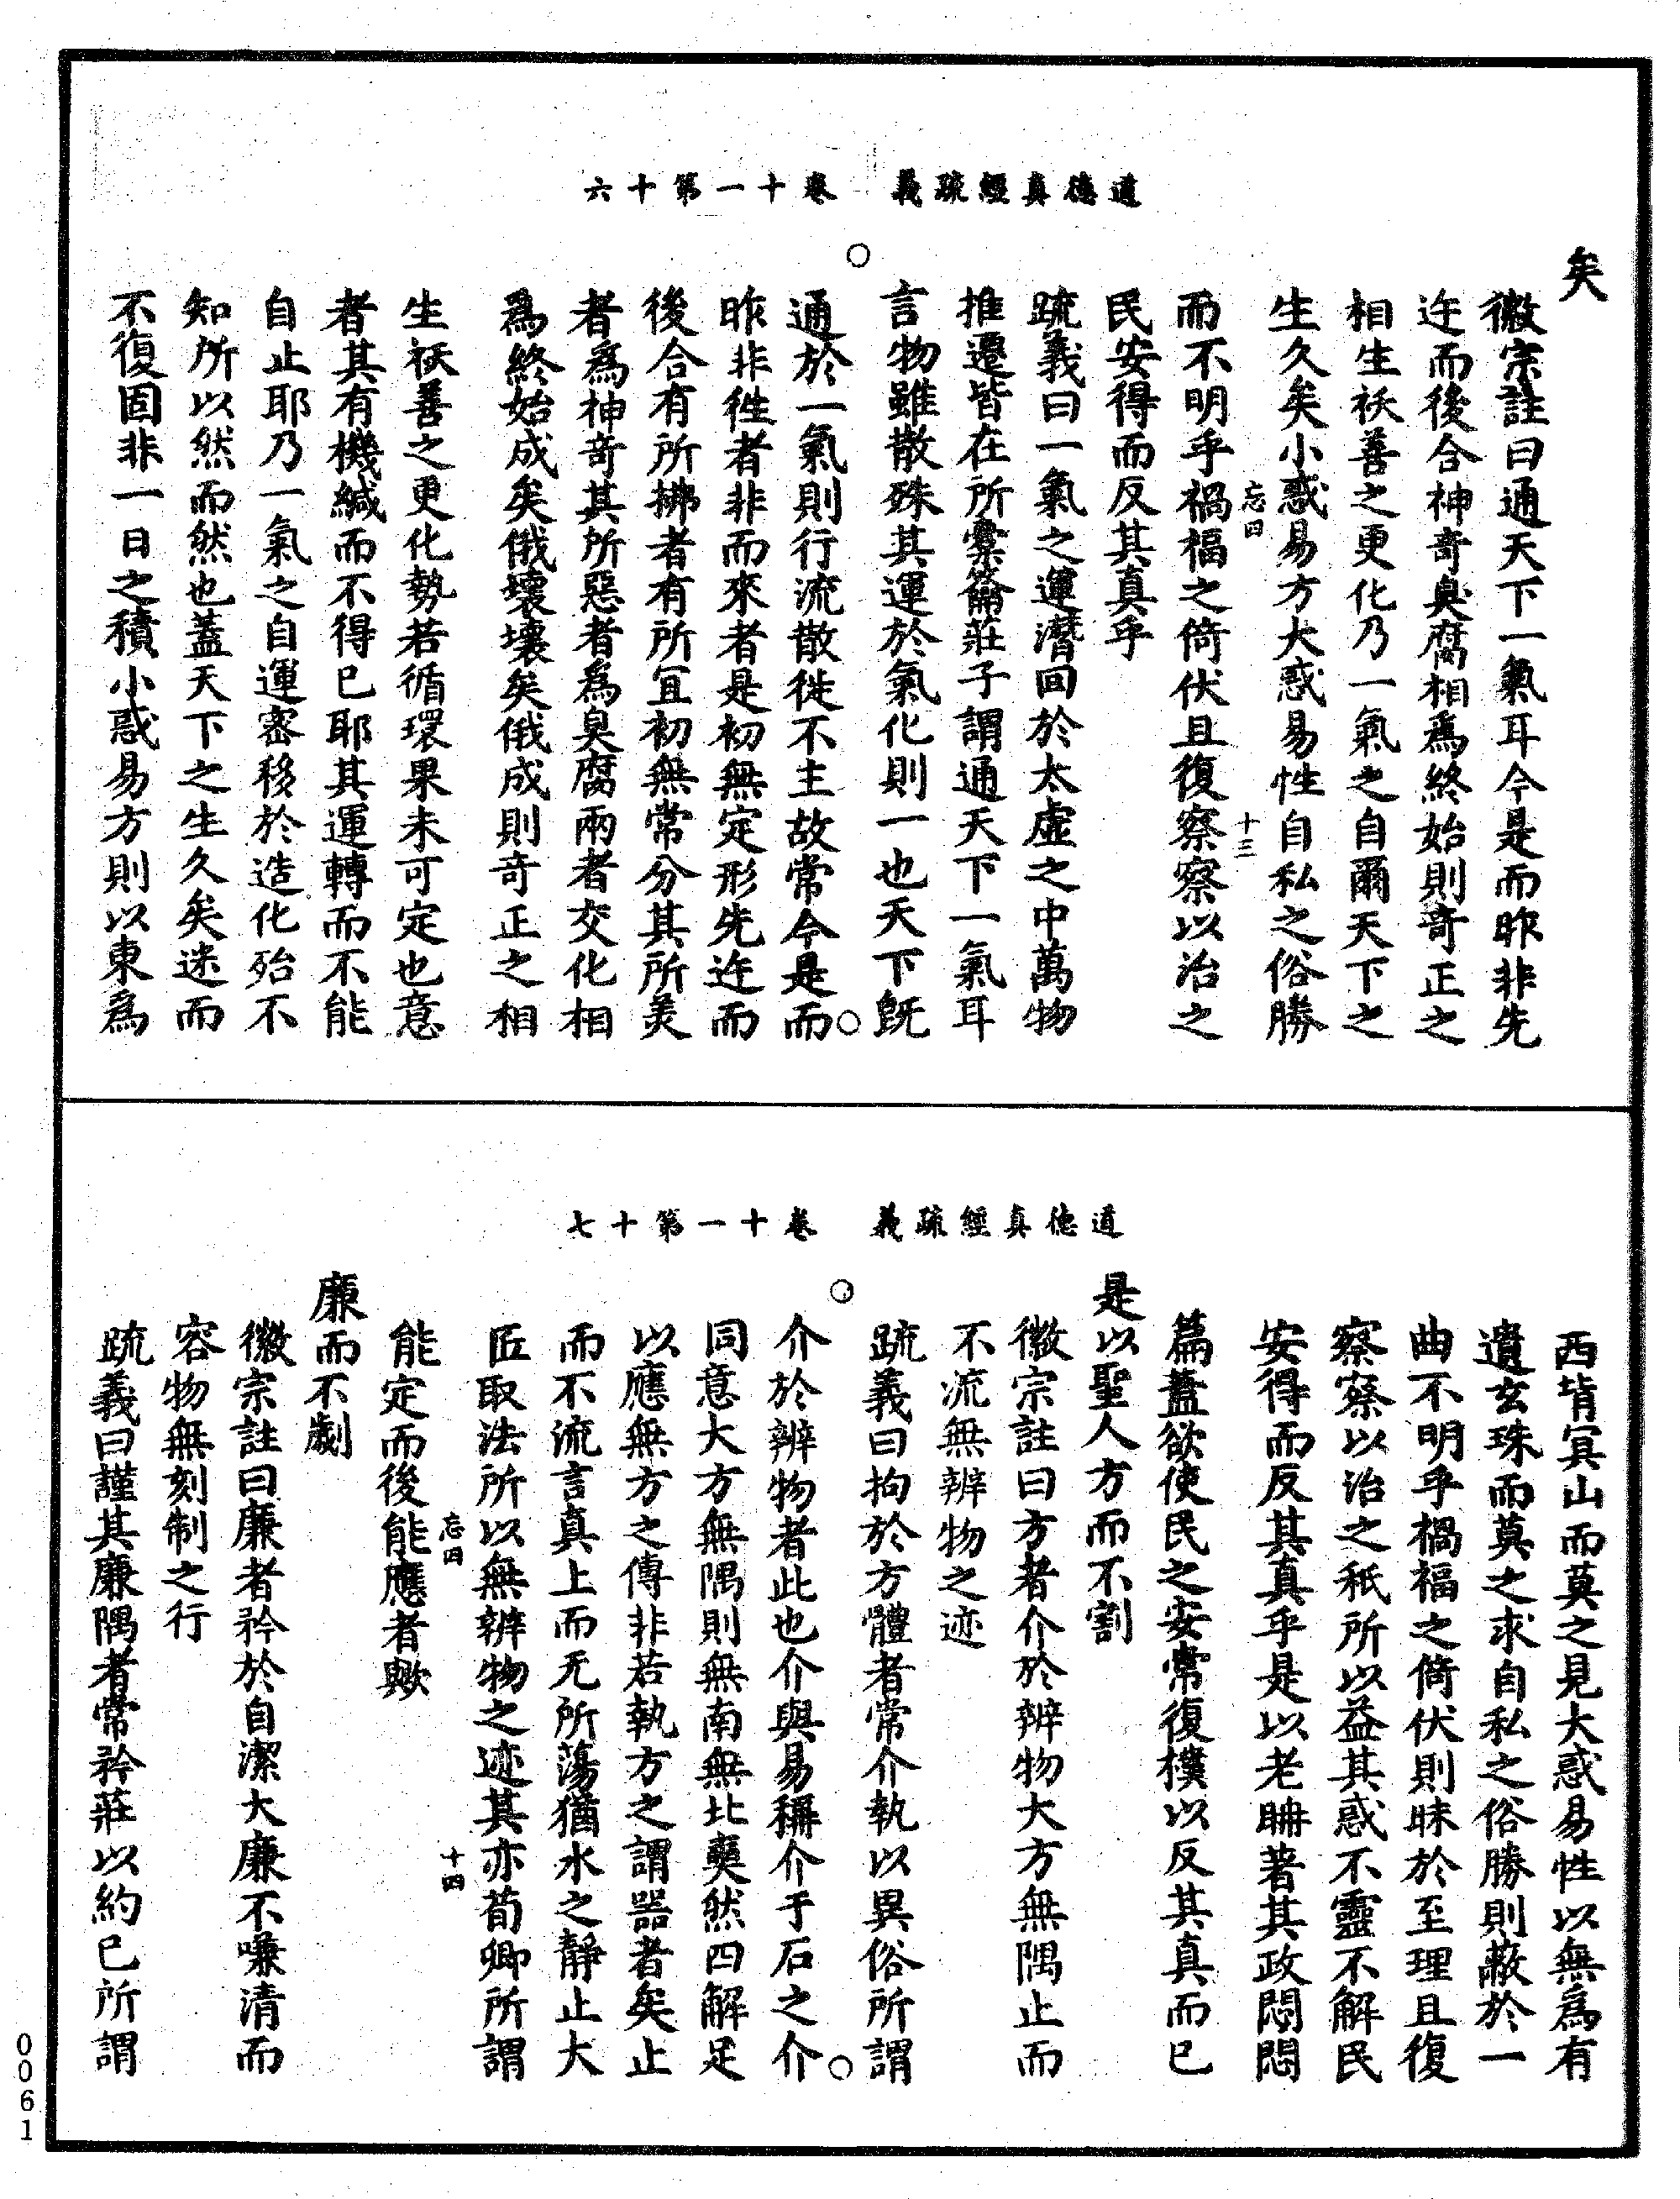 道德真經疏義　卷十一第十六
矣
徽宗註曰通天下一氣耳今是而昨非先
迕而後合神奇臭腐相為終始則奇正之
相生祅善之更化乃一氣之自爾天下之
生久矣小惑易方大惑易性自私之俗勝
忘四　十三
而不明乎禍福之倚伏且復察察以治之
民安得而反其真乎
疏義曰一氣之運潛回於太虛之中萬物
推遷皆在所橐籥莊子謂通天下一氣耳
言物雖散殊其運於氣化則一也天下既
通於一氣則行流散徙不主故常今是而
昨非徃者非而來者是初無定形先迕而
後合有所拂者有所宜初無常分其所美
者為神奇其所惡者為臭腐兩者交化相
為終始成矣俄壞壞矣俄成則奇正之相
生祅善之更化勢若循環果未可定也意
者其有機緘而不得已耶其運轉而不能
自止耶乃一氣之自運密移於造化殆不
知所以然而然也蓋天下之生久矣迷而
不復固非一日之積小惑易方則以東為
道德真經疏義　卷十一第十七
西背冥山而莫之見大惑易性以無為有
遺玄珠而莫之求自私之俗勝則蔽於一
曲不明乎禍福之倚伏則昧於至理且復
察察以治之秖所以益其惑不靈不解民
安得而反其真乎是以老聃著其政悶悶
篇蓋欲使民之安常復樸以反其真而已
是以聖人方而不割
徽宗註曰方者介於辨物大方無隅止而
不流無辨物之迹
疏義曰拘於方體者常介執以異俗所謂
介於辨物者此也介與易稱介于石之介
同意大方無隅則無南無北奭然四解足
以應無方之傳非若執方之謂器者矣止
而不流言真上而无所蕩猶水之靜止大
匠取法所以無辨物之迹其亦荀卿所謂
忘四　十四
能定而後能應者歟
廉而不劌
徽宗註曰廉者矜於自潔大廉不嗛清而
容物無刻制之行
疏義曰謹其廉隅者常矜莊以約已所謂
0061